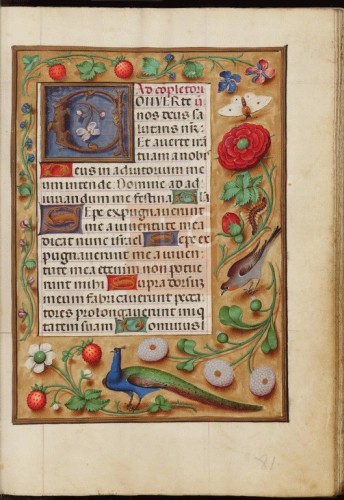 Ad cõpletoriũ
COUERTE
nos deus sa
lutaris nr̃:
Et averte irã
tuam a nobis
Deus in adiutorium me
um intende. Domine ad ad
iuuandum me festina Gla
Sepe expugnauerunt
me a iuuentute mea
dicat nunc israel Sepe ex
pugnauerunt me a iuuen
tute mea etenim non potue
runt michi Supra dorsum
meum fabricauerunt pecca
tores prolongauerunt iniqui
tatem suam Dominus